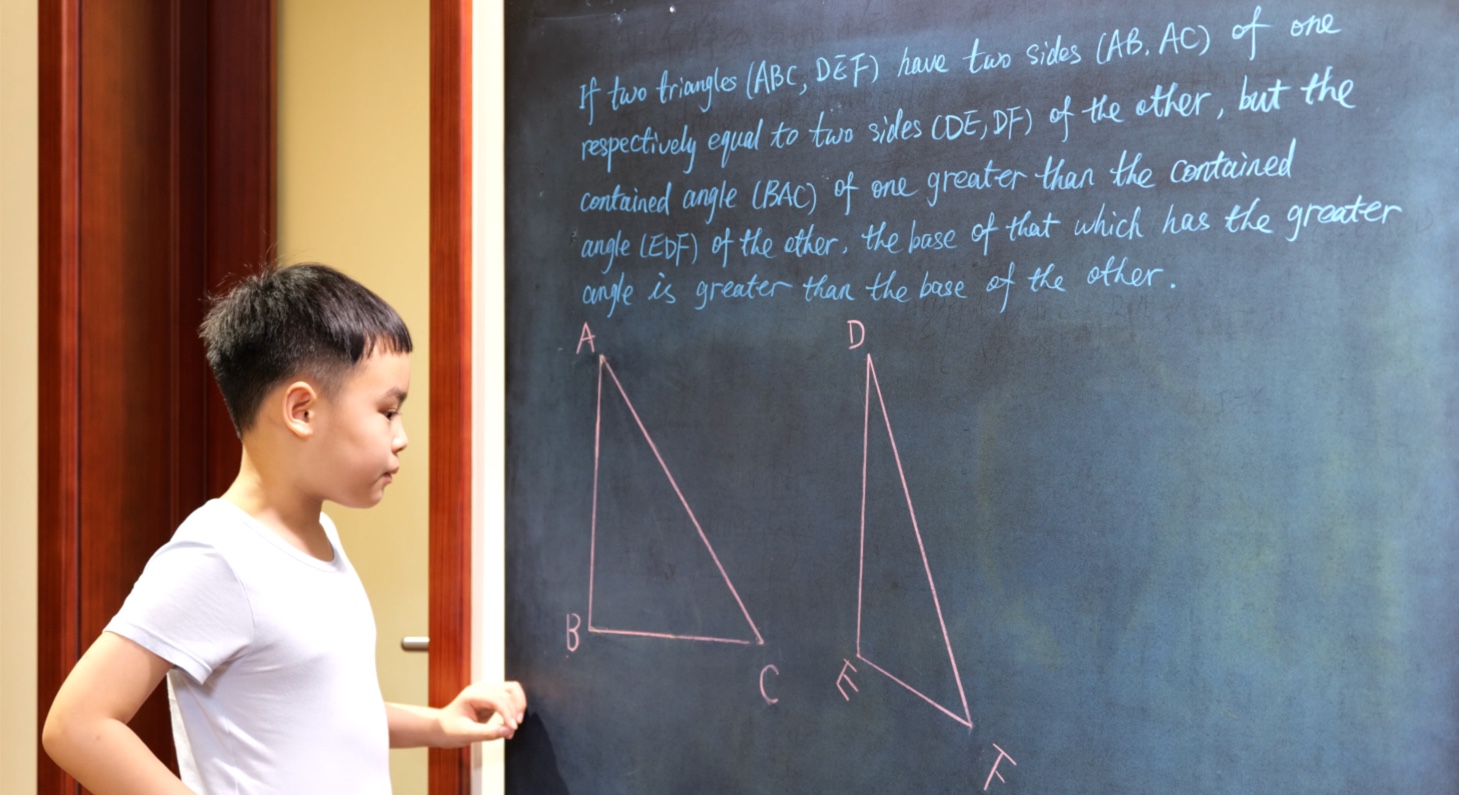 If two triangles (ABC, DEF) have two sides (AB. AC) of one
respectively equal to two sides (DE, DF) of the other, but the
contained angle (BAC) of one greater than the contained
angle (EDF) of the other, the base of that which has the greater
angle is greater than the base of the other.
A
D
B
C
E
F